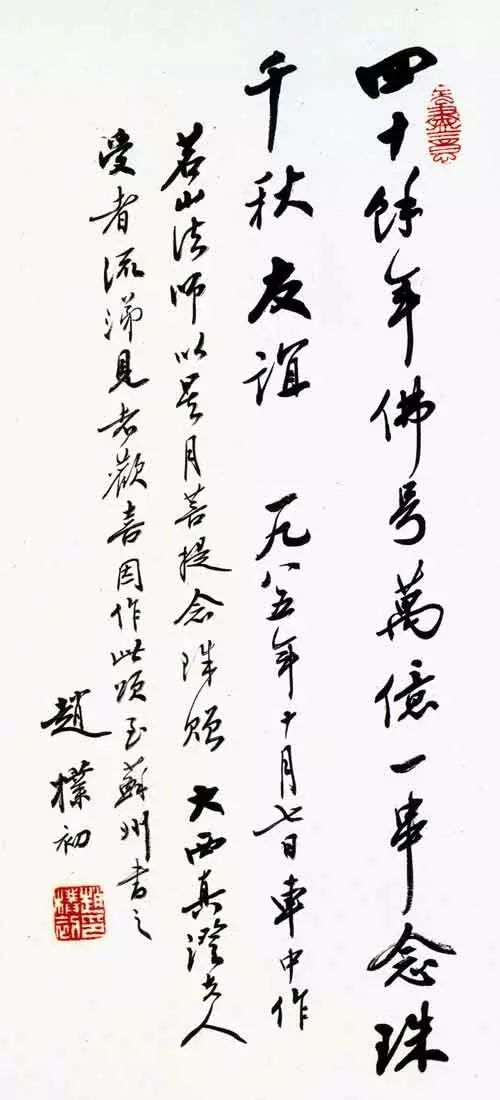 无盡意
四十餘年佛号萬億一串念珠
千秋友誼 一九八五年十月七日車中作
茗山法師以星月菩提念珠贈 大西真澄夫人
受者流涕見者歡喜因作此頌至蘇州書之
趙樸初
趙印樸初